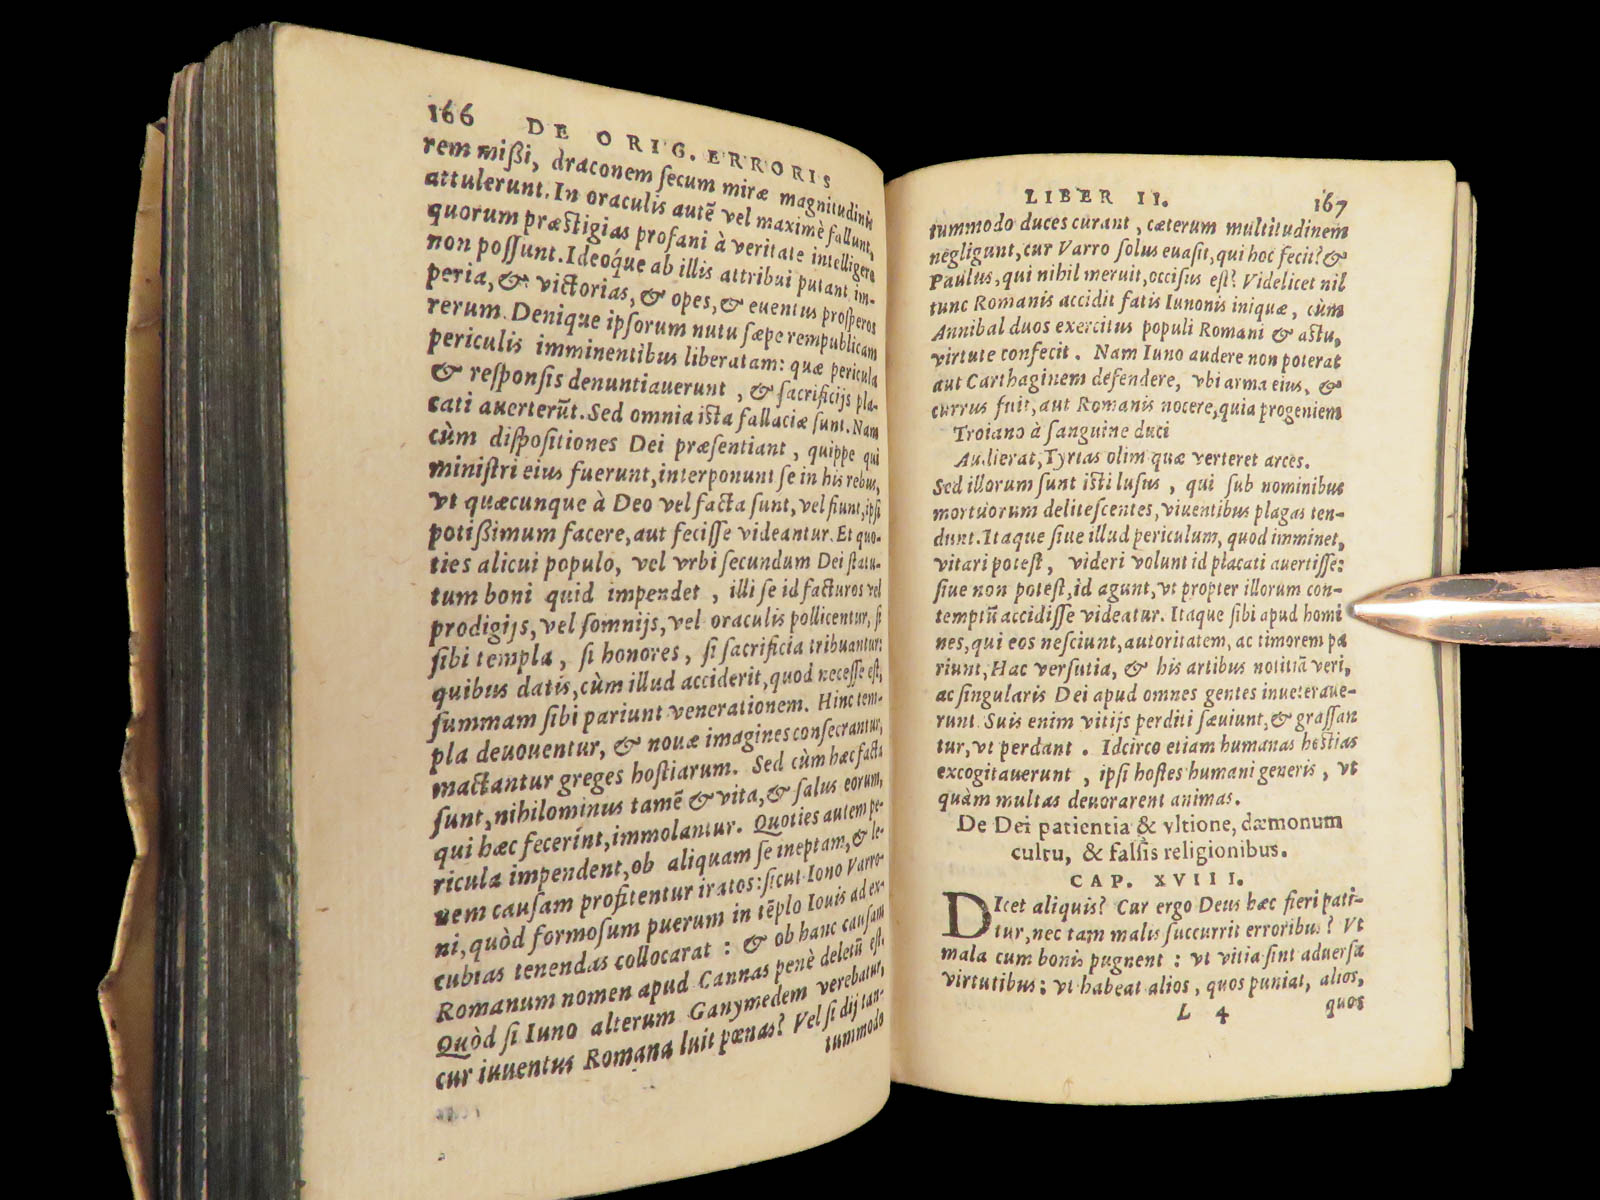 166 DE ORIG. ERRORIS
rem mißi, draconem ſecum miræ magnitudinis
attulerunt. In oraculis autẽ vel maximè fallunt,
quorum præſtigias profani à veritate intelligere
non poſſunt. Ideoq́ue ab illis attribui putant im-
peria, & victorias, & opes, & euentus proſperos
rerum. Denique ipſorum nutu ſæpe rempublicam
periculis imminentibus liberatam: quæ pericula
& reſponſis denuntiauerunt, & ſacrificijs pla-
cati auerterũt. Sed omnia iſta fallaciæ ſunt. Nam
cùm diſpoſitiones Dei præſentiant, quippe qui
miniſtri eius fuerunt, interponunt ſe in his rebus,
vt quæcunque à Deo vel facta ſunt, vel fiunt, ipſi
potißimum facere, aut feciſſe videantur. Et quo-
ties alicui populo, vel vrbi ſecundum Dei ſtatu-
tum boni quid impendet, illi ſe id facturos vel
prodigijs, vel ſomnijs, vel oraculis pollicentur, ſi
ſibi templa, ſi honores, ſi ſacrificia tribuantur:
quibus datis, cùm illud acciderit, quod neceſſe eſt,
ſummam ſibi pariunt venerationem. Hinc tem-
pla deuouentur, & nouæ imagines conſecrantur,
mactantur greges hoſtiarum. Sed cùm hæc facta
ſunt, nihilominus tamẽ & vita, & ſalus eorum,
qui hæc fecerint, immolantur. Quoties autem pe-
ricula impendent, ob aliquam ſe ineptam, & le-
uem cauſam profitentur iratos: ſicut Iuno Varro-
ni, quòd formoſum puerum in tẽplo Iouis ad ex-
cubias tenendas collocarat: & ob hanc cauſam
Romanum nomen apud Cannas penè deletũ eſt.
Quòd ſi Iuno alterum Ganymedem verebatur,
cur iuuentus Romana luit pœnas? Vel ſi dij tan-
tummodo
LIBER II. 167
tummodo duces curant, cæterum multitudinem
negligunt, cur Varro ſolus euaſit, qui hoc fecit? &
Paulus, qui nihil meruit, occiſus eſt? Videlicet nil
tunc Romanis accidit fatis Iunonis iniquæ, cùm
Annibal duos exercitus populi Romani & aſtu,
virtute confecit. Nam Iuno audere non poterat
aut Carthaginem defendere, vbi arma eius, &
currus fuit, aut Romanis nocere, quia progeniem
Troiano à ſanguine duci
Audierat, Tyrias olim quæ verteret arces.
Sed illorum ſunt iſti luſus, qui ſub nominibus
mortuorum deliteſcentes, viuentibus plagas ten-
dunt. Itaque ſiue illud periculum, quod imminet,
vitari poteſt, videri volunt id placati auertiſſe:
ſiue non poteſt, id agunt, vt propter illorum con-
temptũ accidiſſe videatur. Itaque ſibi apud homi
nes, qui eos neſciunt, autoritatem, ac timorem pa
riunt, Hac verſutia, & his artibus notitiã veri,
ac ſingularis Dei apud omnes gentes inueteraue-
runt. Suis enim vitijs perditi ſæuiunt, & graſſan
tur, vt perdant. Idcirco etiam humanas hoſtias
excogitauerunt, ipſi hoſtes humani generis, vt
quàm multas deuorarent animas.
De Dei patientia & vltione, dæmonum
cultu, & falſis religionibus.
CAP. XVIII.
DIcet aliquis? Cur ergo Deus hæc fieri pati-
tur, nec tam malis ſuccurrit erroribus? Vt
mala cum bonis pugnent: vt vitia ſint aduerſa
virtutibus: vt habeat alios, quos puniat, alios,
L 4 quos